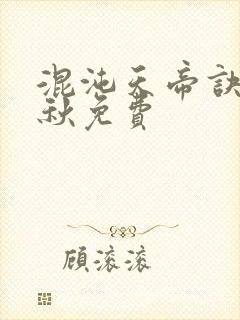 混沌天帝訣
秋免費
顧滾滾